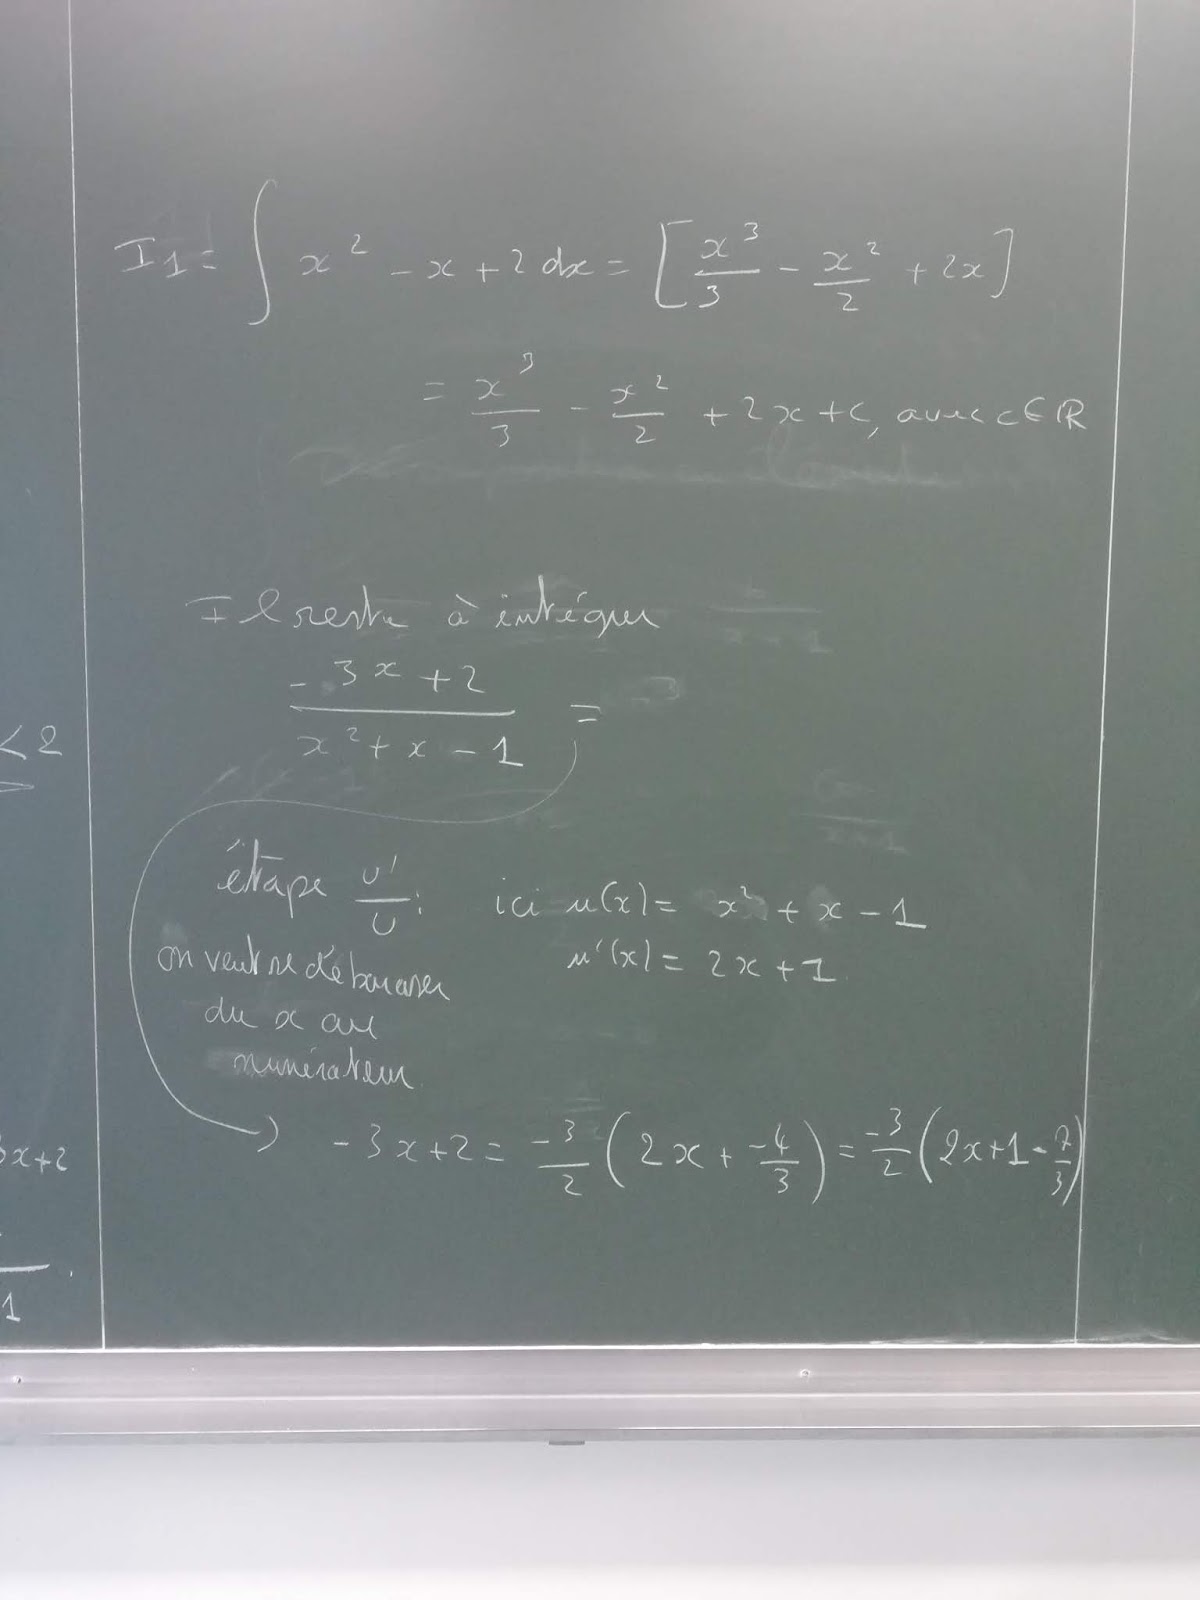 I1 = ∫ x² - x + 2 dx = [x³/3 - x²/2 + 2x]
= x³/3 - x²/2 + 2x + c, avec c ∈ ℝ
Il reste à intégrer
(-3x + 2)/(x² + x - 1) =
étape u'/u : ici u(x) = x² + x - 1
u'(x) = 2x + 1
on veut se débarasser
du x au
numérateur
-3x + 2 = -3/2 (2x + -4/3) = -3/2 (2x + 1 - 7/3)
< 2
3x + 2
1